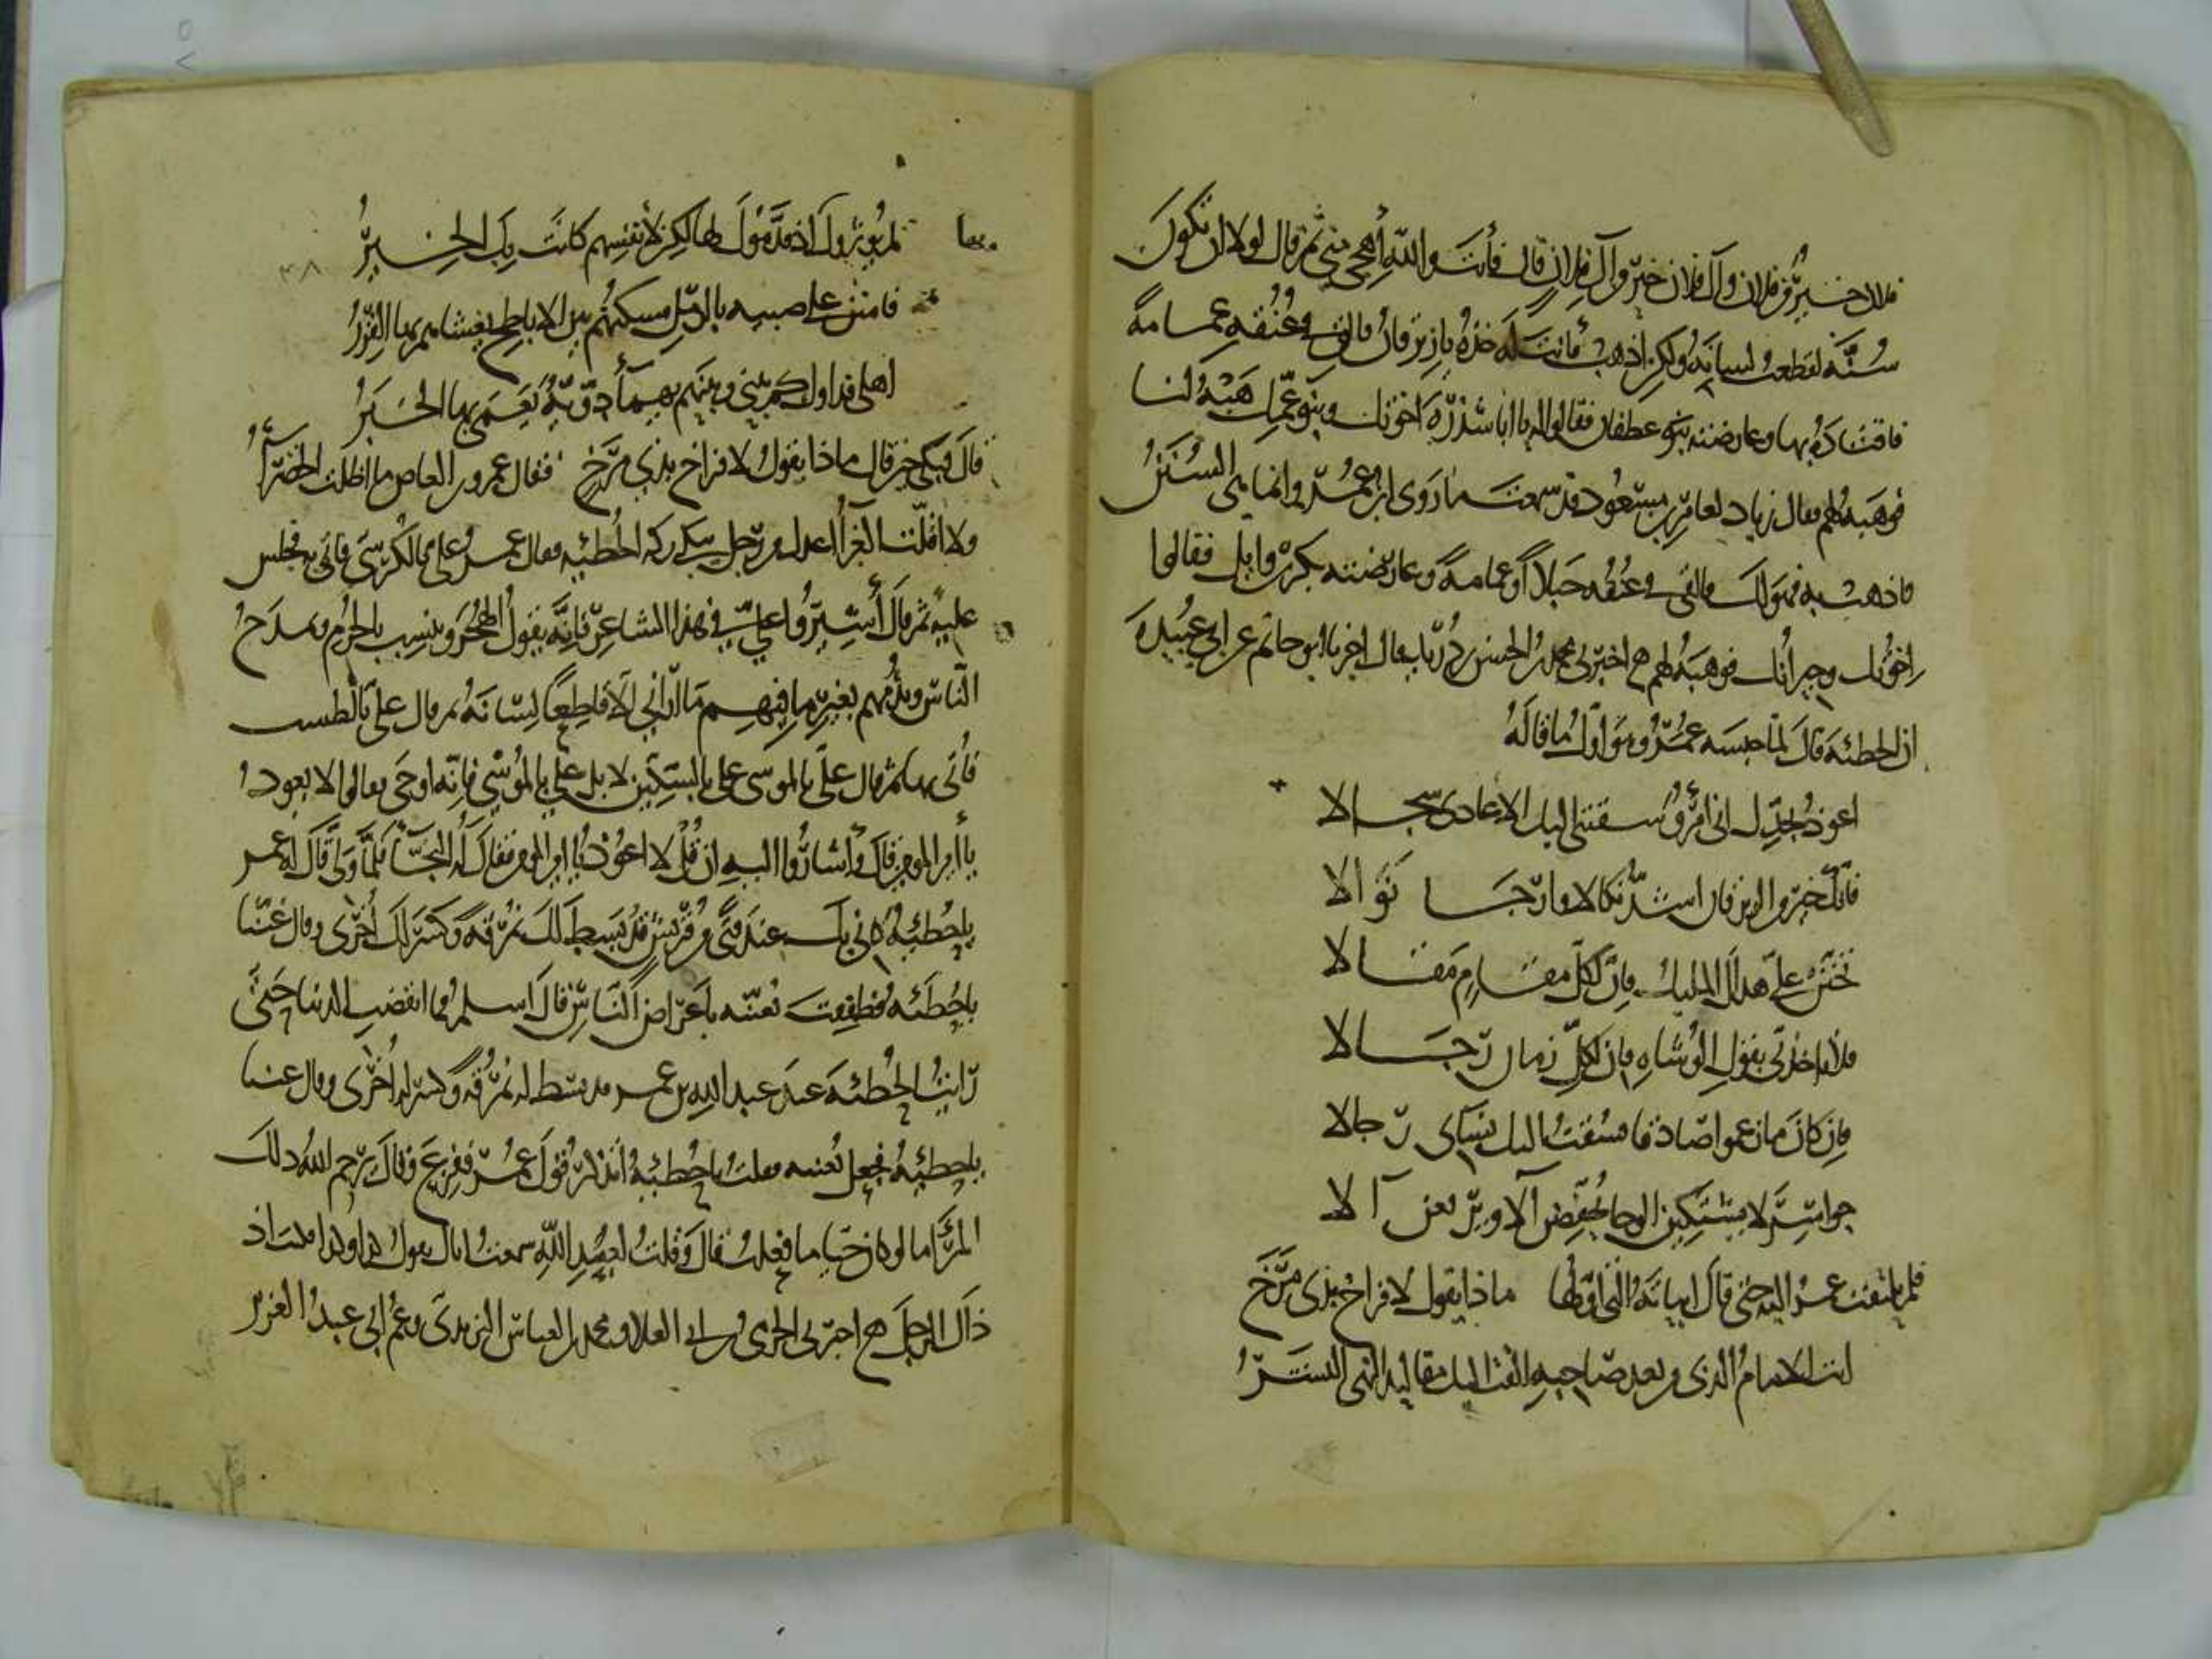 فلان خير من فلان وآل فلان خير من آل فلان قال فأنت والله أهجى مني ثم قال لولا ان تكون
سُنَّة لقطعت لسانه ولكن اذهب فأنت له خذه يا زبرقان فالقى في عنقه عمامة
فاقتاده بها وعارضته بنو غطفان فقالوا له يا ابا شذرة اخوتك وبنو عمك هبه لنا
فوهبه لهم فقال زياد لعامر بن مسعود قد سمعت ما روى ابن عمر وانما هى السنن
فاذهب به فهو لك فالقى في عنقه حبلا أو عمامة وعارضته بكر بن وايل فقالوا
اخوتك وجيرانك فوهبه لهم اخبرني محمد بن الحسن بن دريد قال اخبرنا ابو حاتم عن ابي عبيدة
ان الحطئة قال لما حبسه عمر وهو اول ما قاله
اعوذ بجدك انى امرؤ سقتنى اليك الاعادى سجالا
فانك خير من الزبرقان اشد نكالا وارجا نوالا
تحنن على هداك المليك فان لكل مقام مقالا
فلا تاخذني بقول الوشاه فان لكل زمان رجالا
فان كان ما زعموا صادقا فسيقت اليك نسآى رجالا
حواسر لا يشتكين الوجا يخفضن آلا ويرفعن آلا
فلم يلتفت عمر اليه حتى قال ابياته التى اولها ماذا يقول لافراخ بذى مرخ
انت الامام الذى من بعد صاحبه القت اليك مقاليد النهى البشر
لم يوثروك اذ قدموك لها لكن لأنفسهم كانت بك الخير
فامنن على صبيه بالرمل مسكنهم بين الاباطح يغشاهم بها القرر
اهلى فداوك كم بينى وبينهم من داوية يعمى بها الخبر
قال فبكى حين قال ماذا يقول لافراخ بذي مرخ فقال عمرو بن العاص ما اظلت الخضرآ
ولا اقلت الغبرآ اعدل من رجل يبكى على تركه الحطيئه فقال عمر على بالكرسى فاتى به فجلس
عليه ثم قال أشيروا علي في هذا الشاعر فانه يقول الهجر وينسب بالحرم ويمدح
الناس ويذمهم بغير ما فيهم ما اراني الا قاطعا لسانه ثم قال على بالطست
فأتى بها ثم قال على بالموسى على بالسكين لا بل على بالموسى فانه اوحى فقالوا لا يعود
يا أمير المومنين قال وأشاروا اليه ان قل لا اعود يا امير المومنين فقال له النجآ فلما ولى قال له عمر
يا حطيئه كانى بك عند فتى من قريش قد بسط لك نمرقه وكسر لك أخرى وقال غننا
يا حطئه فطفقت تغنيه باعراض الناس قال اسلم فما انقضت الدنيا حتى
رأيت الحطئه عند عبيد الله بن عمر قد بسط له نمرقه وكسر له اخرى وقال غننا
يا حطيئه فجعل يغنيه فقلت يا حطيئه أتذكر قول عمر ففزع وقال يرحم الله ذلك
المرء اما لو كان حيا ما فعلت قال وقلت لعبيد الله سمعت اباك يقول كذا وكذا فكنت انت
ذاك الرجل اخبرني الحرمى بن ابي العلاء ومحمد بن العباس اليزيدى وعم ابى عبد العزيز